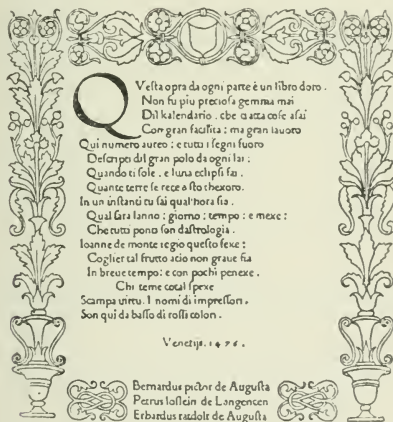 QVesta opra da ogni parte è un libro doro.
Non fu piu preciosa gemma mai
Dil kalendario. che tratta cose asai
Con gran facilita: ma gran lauoro
Qui numero aureo: e tutti i segni fuoro
Descripti dil gran polo da ogni lai:
Quando ti sole. e luna eclipsi fai.
Quante terre se rece a sto thexoro.
In un instanti tu sai qual'hora sia.
Qual sara lanno: giorno: tempo: e mexe:
Che tutti ponti son dastrologia.
Ioanne de monte regio questo fexe:
Coglier tal frutto acio non graue sia
In breue tempo: e con pochi penexe.
Chi teme cotal spexe
Scampa uirtu. I nomi di impressori.
Son qui da basso di rossi colori.
Venetijs. 1476.
Bernardus pictor de Augusta
Petrus loslein de Langencen
Erhardus ratdolt de Augusta